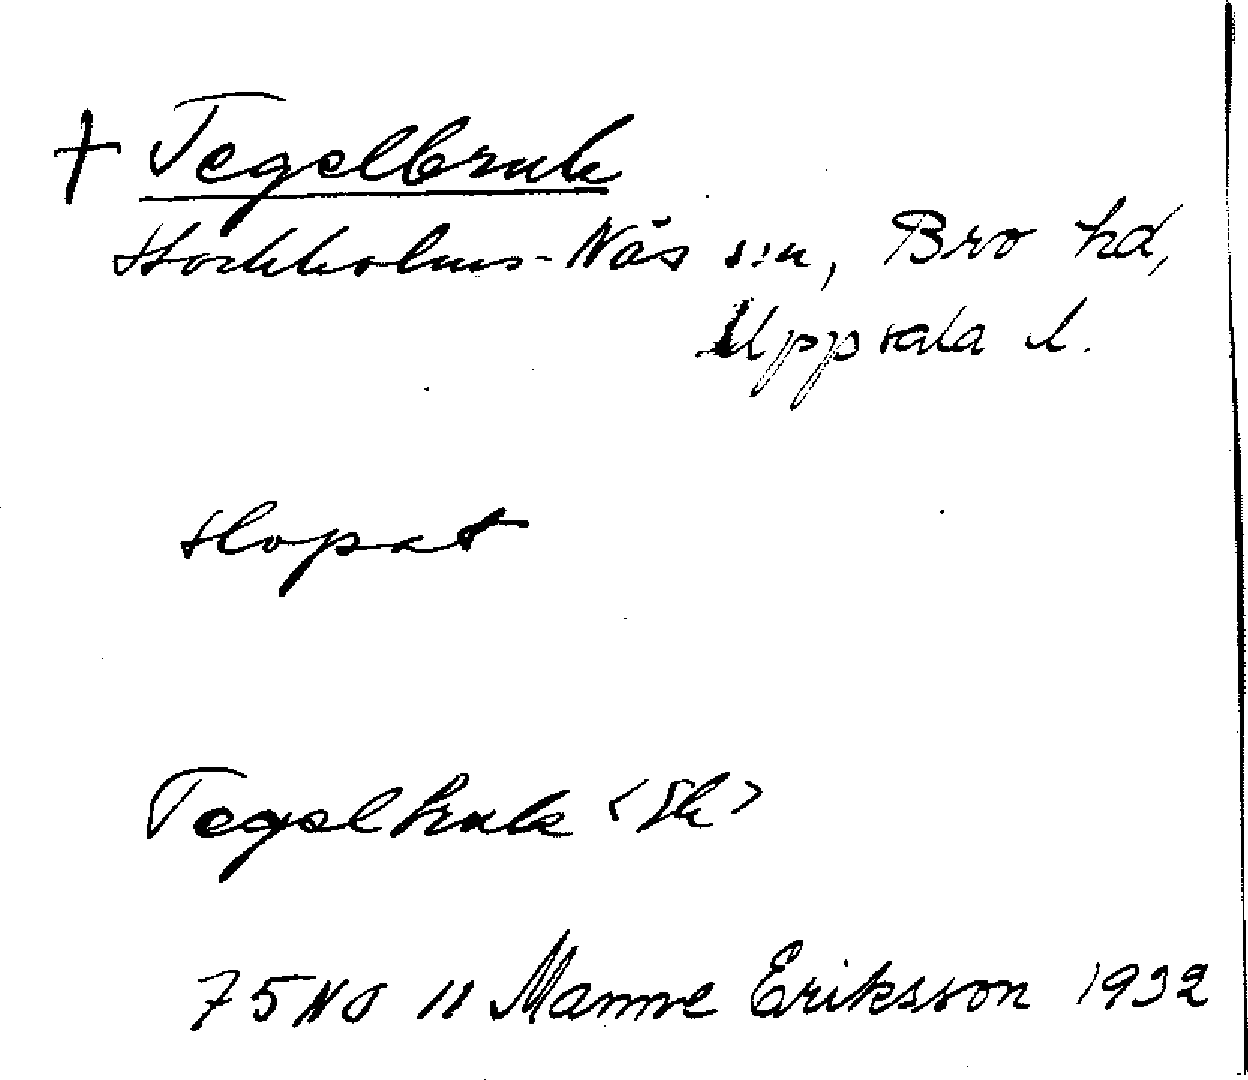 † Tegelbruk
Stockholms-Näs sn, Bro hd,
Uppsala l.
slopat
Tegelbruk <Sk>
75 NO 11 Manne Eriksson 1932